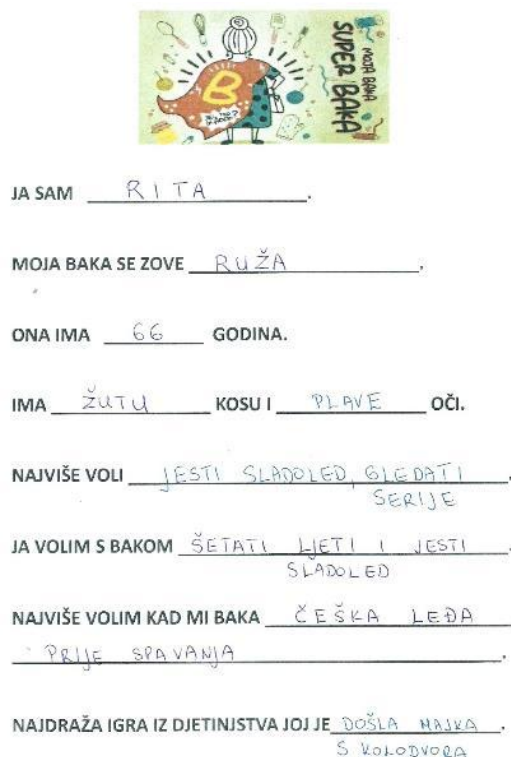 MOJA BAKA
SUPER BAKA
B
JA SAM RITA.
MOJA BAKA SE ZOVE RUŽA.
ONA IMA 66 GODINA.
IMA ŽUTU KOSU I PLAVE OČI.
NAJVIŠE VOLI JESTI SLADOLED, GLEDATI
SERIJE.
JA VOLIM S BAKOM ŠETATI LJETI I JESTI
SLADOLED.
NAJVIŠE VOLIM KAD MI BAKA ČEŠKA LEĐA
PRIJE SPAVANJA.
NAJDRAŽA IGRA IZ DJETINJSTVA JOJ JE DOŠLA MAJKA
S KOLODVORA.